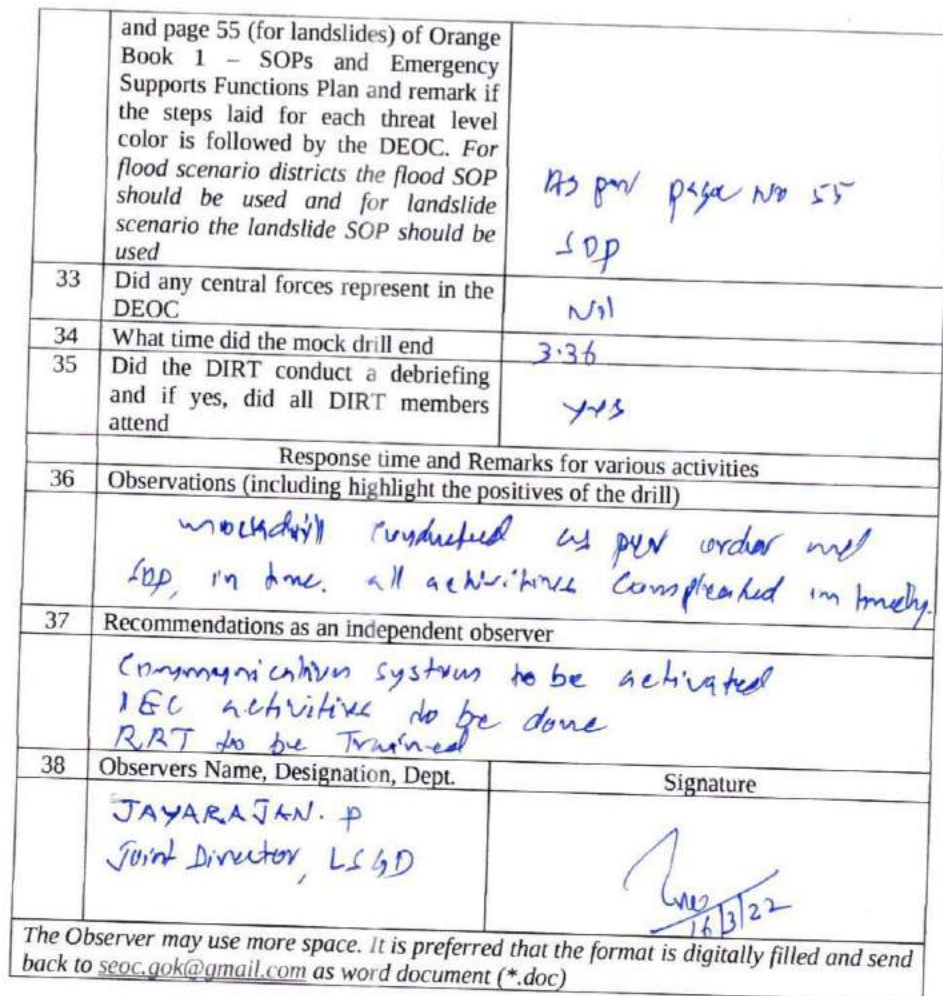 and page 55 (for landslides) of Orange
Book 1 – SOPs and Emergency
Supports Functions Plan and remark if
the steps laid for each threat level
color is followed by the DEOC. For
flood scenario districts the flood SOP
should be used and for landslide
scenario the landslide SOP should be
used
As per page No 55
SOP
33 Did any central forces represent in the
DEOC
Nil
34 What time did the mock drill end
3.36
35 Did the DIRT conduct a debriefing
and if yes, did all DIRT members
attend
yes
Response time and Remarks for various activities
36 Observations (including highlight the positives of the drill)
mockdrill conducted as per order and
SOP, in time. all activities in
37 Recommendations as an independent observer
Communication system to be activated
IEC activities to be done
RRT to be Trained
38 Observers Name, Designation, Dept.
Signature
JAYARAJAN. P
Joint Director, LSGD
16/3/22
The Observer may use more space. It is preferred that the format is digitally filled and send
back to seoc.gok@gmail.com as word document (*.doc)